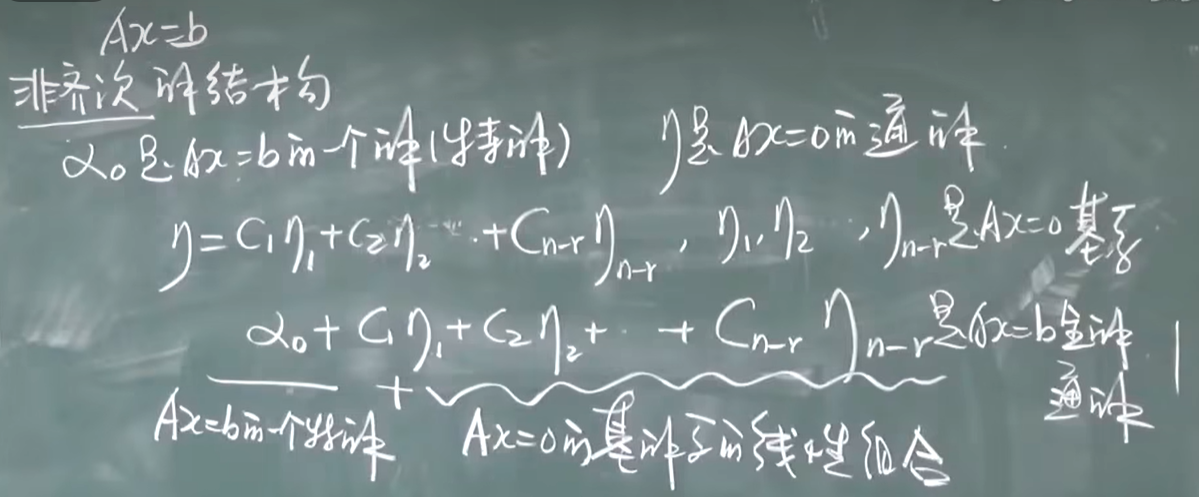 Ax=b
非齐次 解结构
α₀是Ax=b的一个解(特解) η是Ax=0的通解.
η=C₁η₁+C₂η₂…+Cₙ₋ᵣηₙ₋ᵣ, η₁,η₂ ,ηₙ₋ᵣ是Ax=0基系
α₀+C₁η₁+C₂η₂+…+Cₙ₋ᵣηₙ₋ᵣ是Ax=b全解
通解
+
Ax=b的一个特解 Ax=0的基解系的线性组合